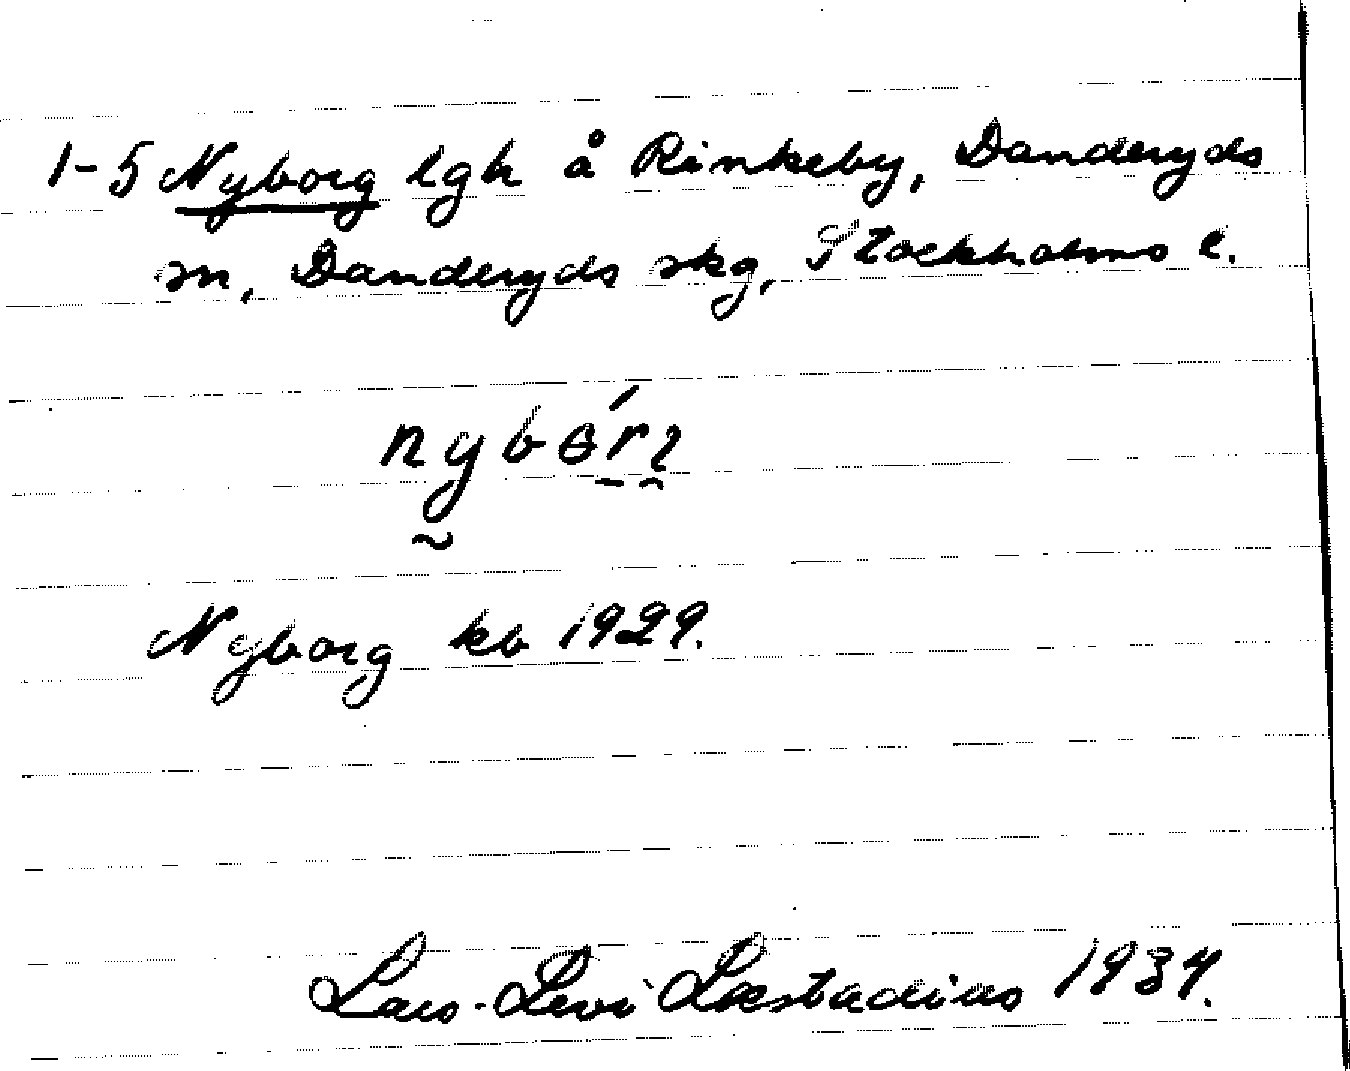 1-5 Nyborg lgh å Rinkeby, Danderyds
sn, Danderyds skg, Stockholms l.
Nyborg kb 1929.
Lars-Levi Læstadius 1934.